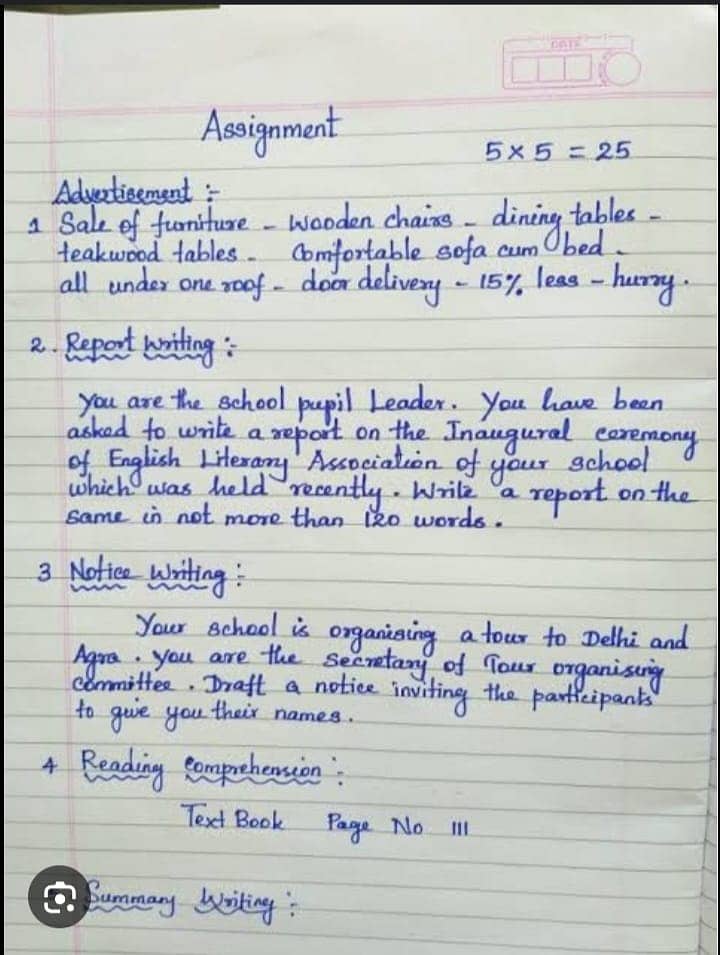 DATE
Assignment
5 x 5 = 25
Advertisement :-
1 Sale of furniture - wooden chairs - dining tables -
teakwood tables - Comfortable sofa cum bed -
all under one roof - door delivery - 15% less - hurry.
2. Report Writing :-
You are the school pupil Leader. You have been
asked to write a report on the Inaugural ceremony
of English Literary Association of your school
which was held recently. Write a report on the
same in not more than 120 words.
3 Notice Writing :-
Your school is organising a tour to Delhi and
Agra. You are the secretary of Tour organising
committee. Draft a notice inviting the participants
to give you their names.
4 Reading Comprehension :-
Text Book Page No 111
Summary Writing :-